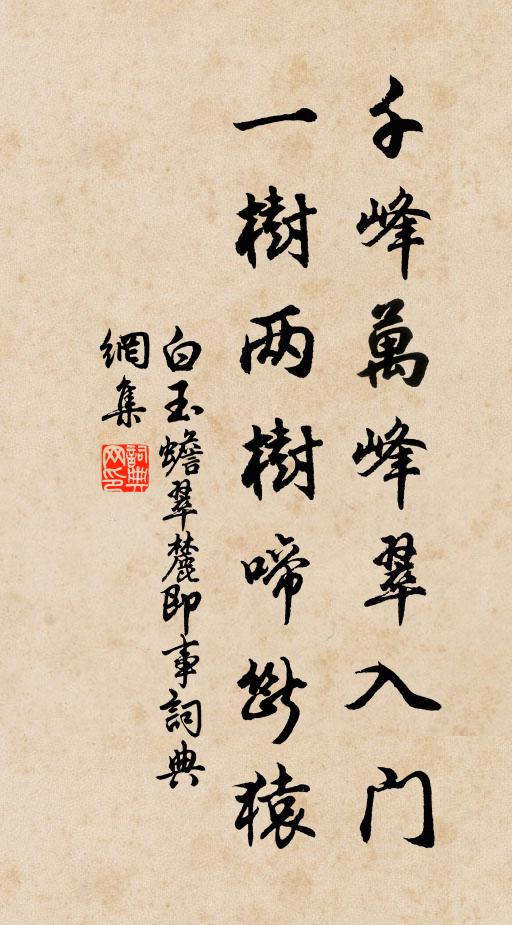 千峰萬峰翠入门
一樹两樹啼斷猿
白玉蟾翠麓即事詞典
網集
詞典
网印